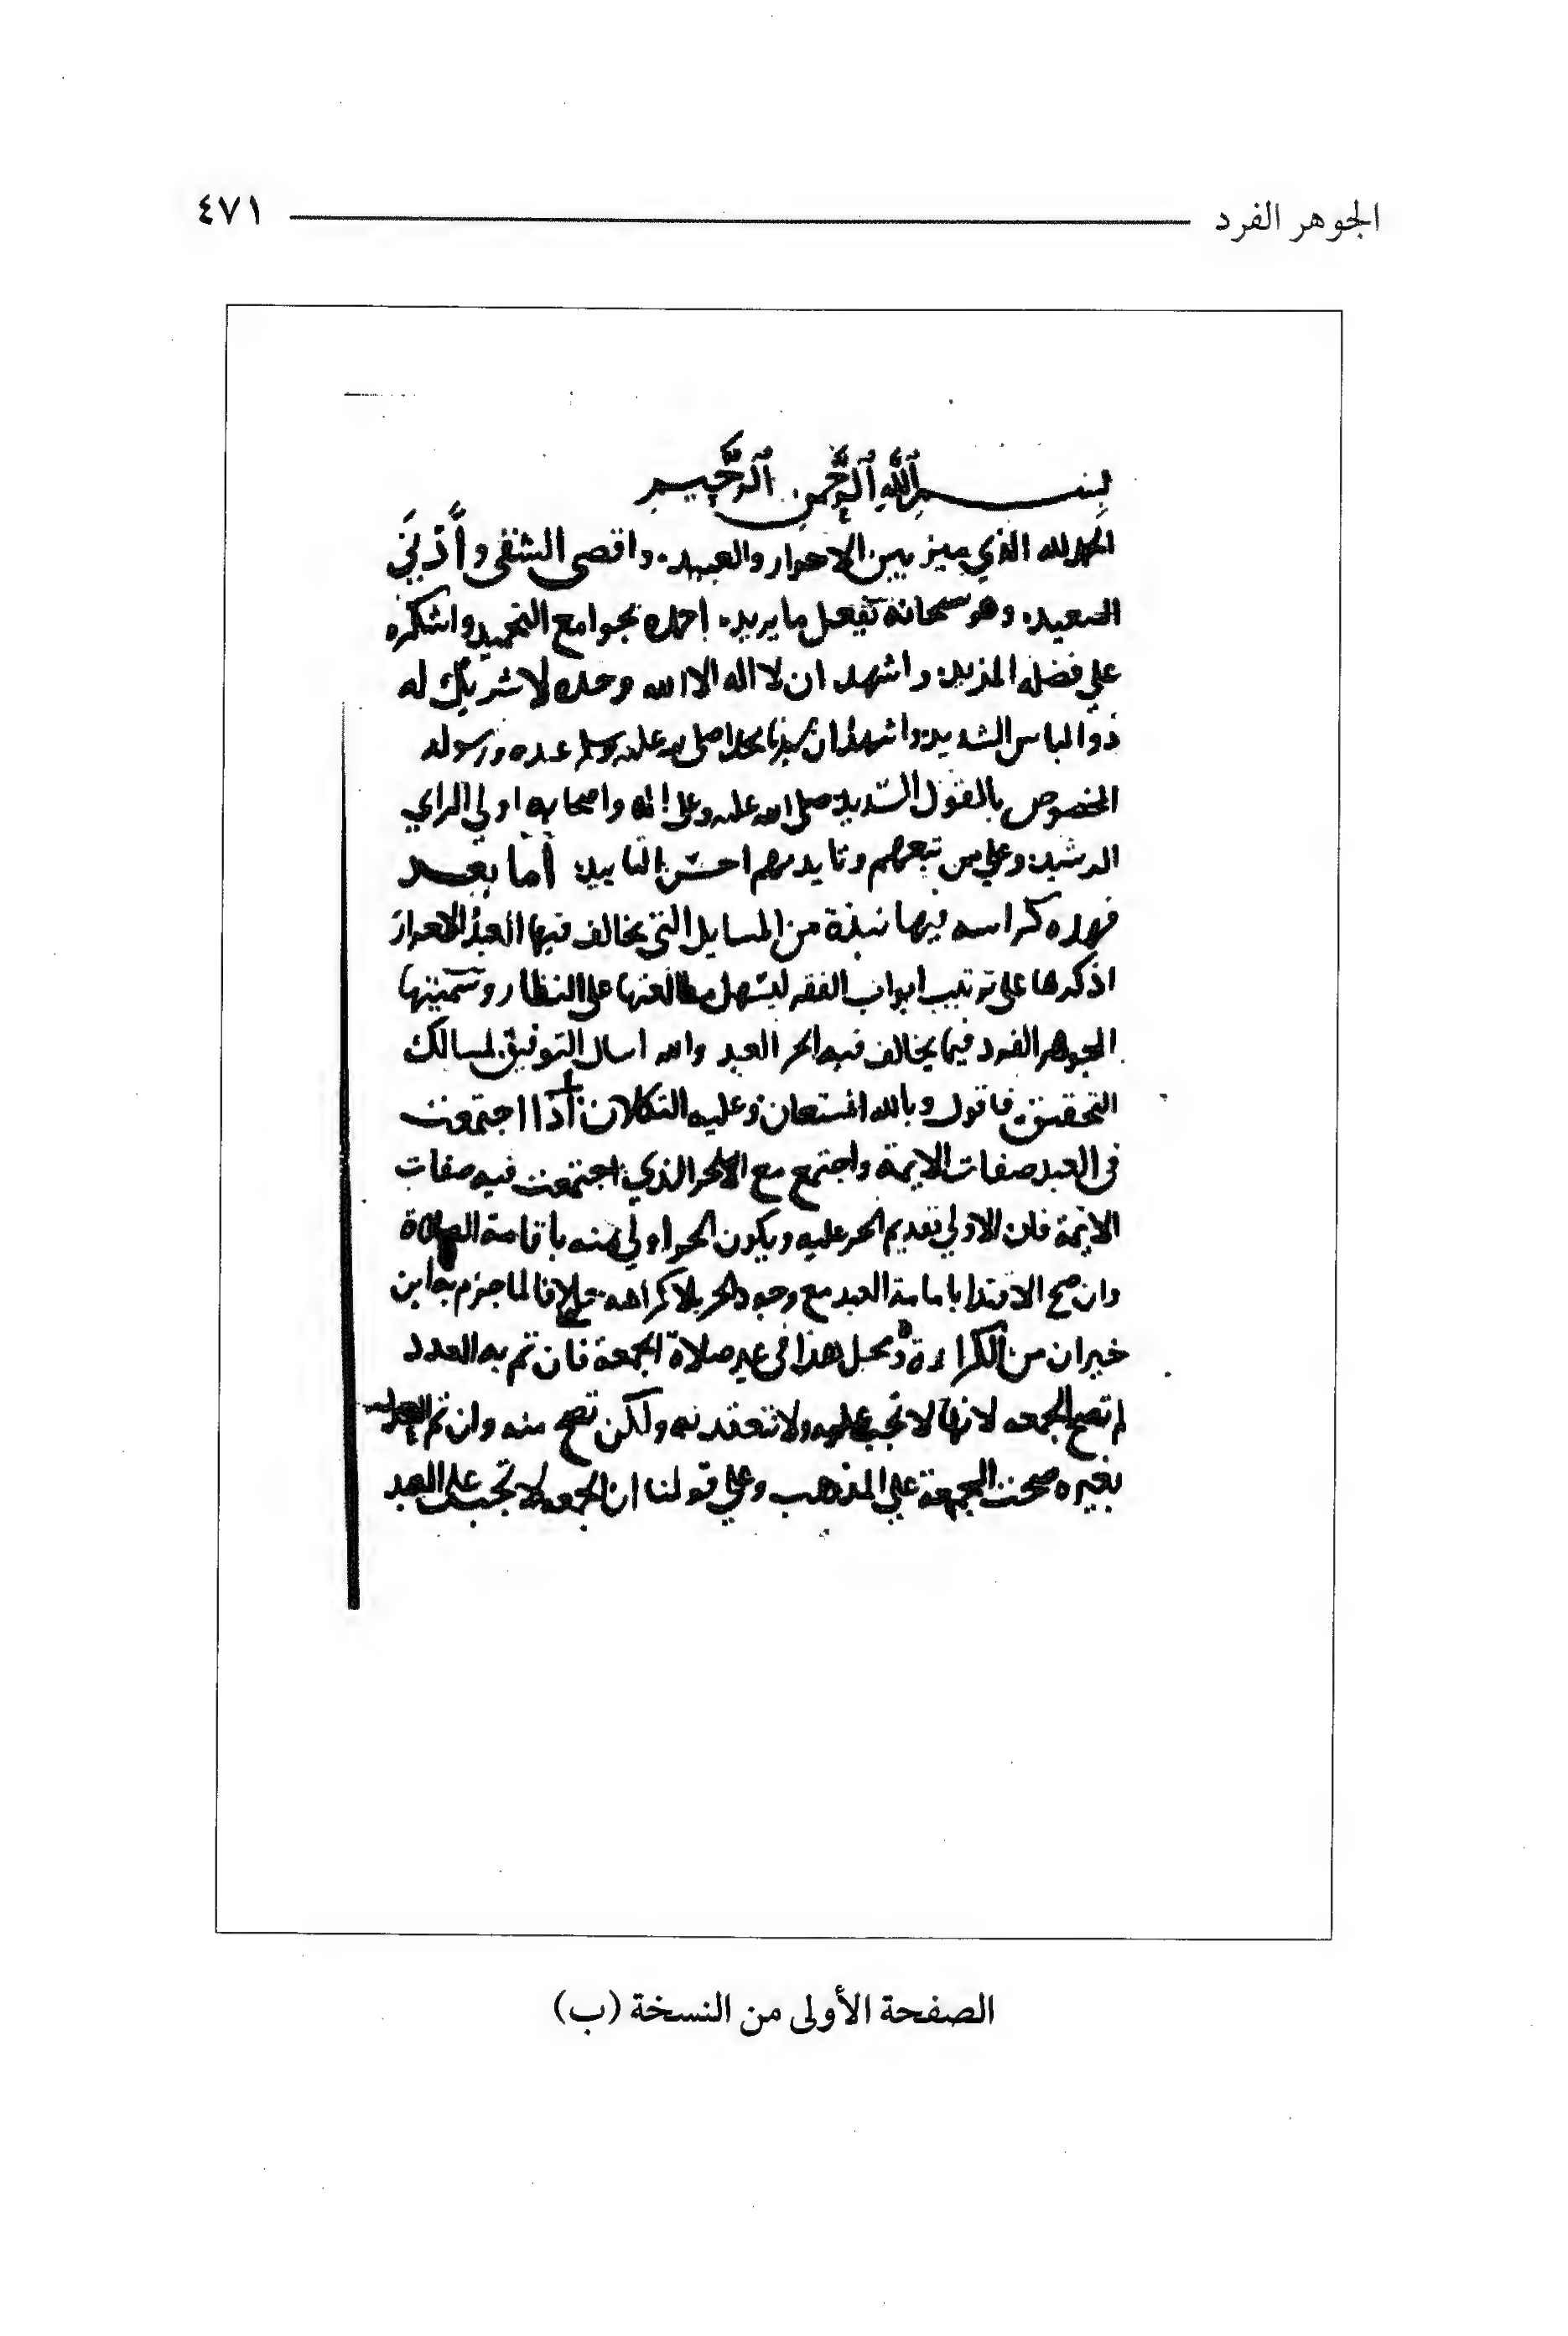 الجوهر الفرد ٤٧١
بسم الله الرحمن الرحيم
الحمد لله الذي ميز بين الاحرار والعبيد. واقصى الشقى وأدني
السعيد. وهو سبحانه يفعل ما يريد. احمده بجوامع التحميد واشكره
علي فضله المزيد. واشهد ان لا اله الا الله وحده لا شريك له
ذو الباس الشديد. واشهد ان سيدنا محمدا صلى الله عليه وسلم عبده ورسوله
المخصوص بالقول السديد صلى الله عليه وعلى اله واصحابه اولي الراي
الرشيد وعلي من تبعهم احسن التاييد أما بعد
فهذه كراسه فيها نبذة من المسايل التي يخالف فيها العبد الاحرار
اذكرها على ترتيب ابواب الفقه ليسهل مطالعتها على النظار وسميتها
الجوهر الفرد فيما يخالف فيه الحر العبد والله اسال التوفيق لمسالك
التحقيق فاقول وبالله المستعان وعليه التكلان اذا اجتمعت
في العبد صفات الايمة واجتمع مع الحر الذي اجتمعت فيه صفات
الائمة فان الاولي تقديم الحر عليه ويكون الحر اولي منه باقامة الصلاة
وان صح الاقتدا بامامة العبد مع وجود الحر بلا كراهه خلافا لما جزم به ابن
خيران من الكراهة ومحل هذا في غير صلاة الجمعة فان تم به العدد
لم تصح الجمعه لانها لا تجب عليه ولا تنعقد به ولكن تصح منه وان تم العدد
بغيره صحت الجمعة علي المذهب وعلي قولنا ان الجمعه لا تجب على العبد
الصفحة الأولى من النسخة (ب)